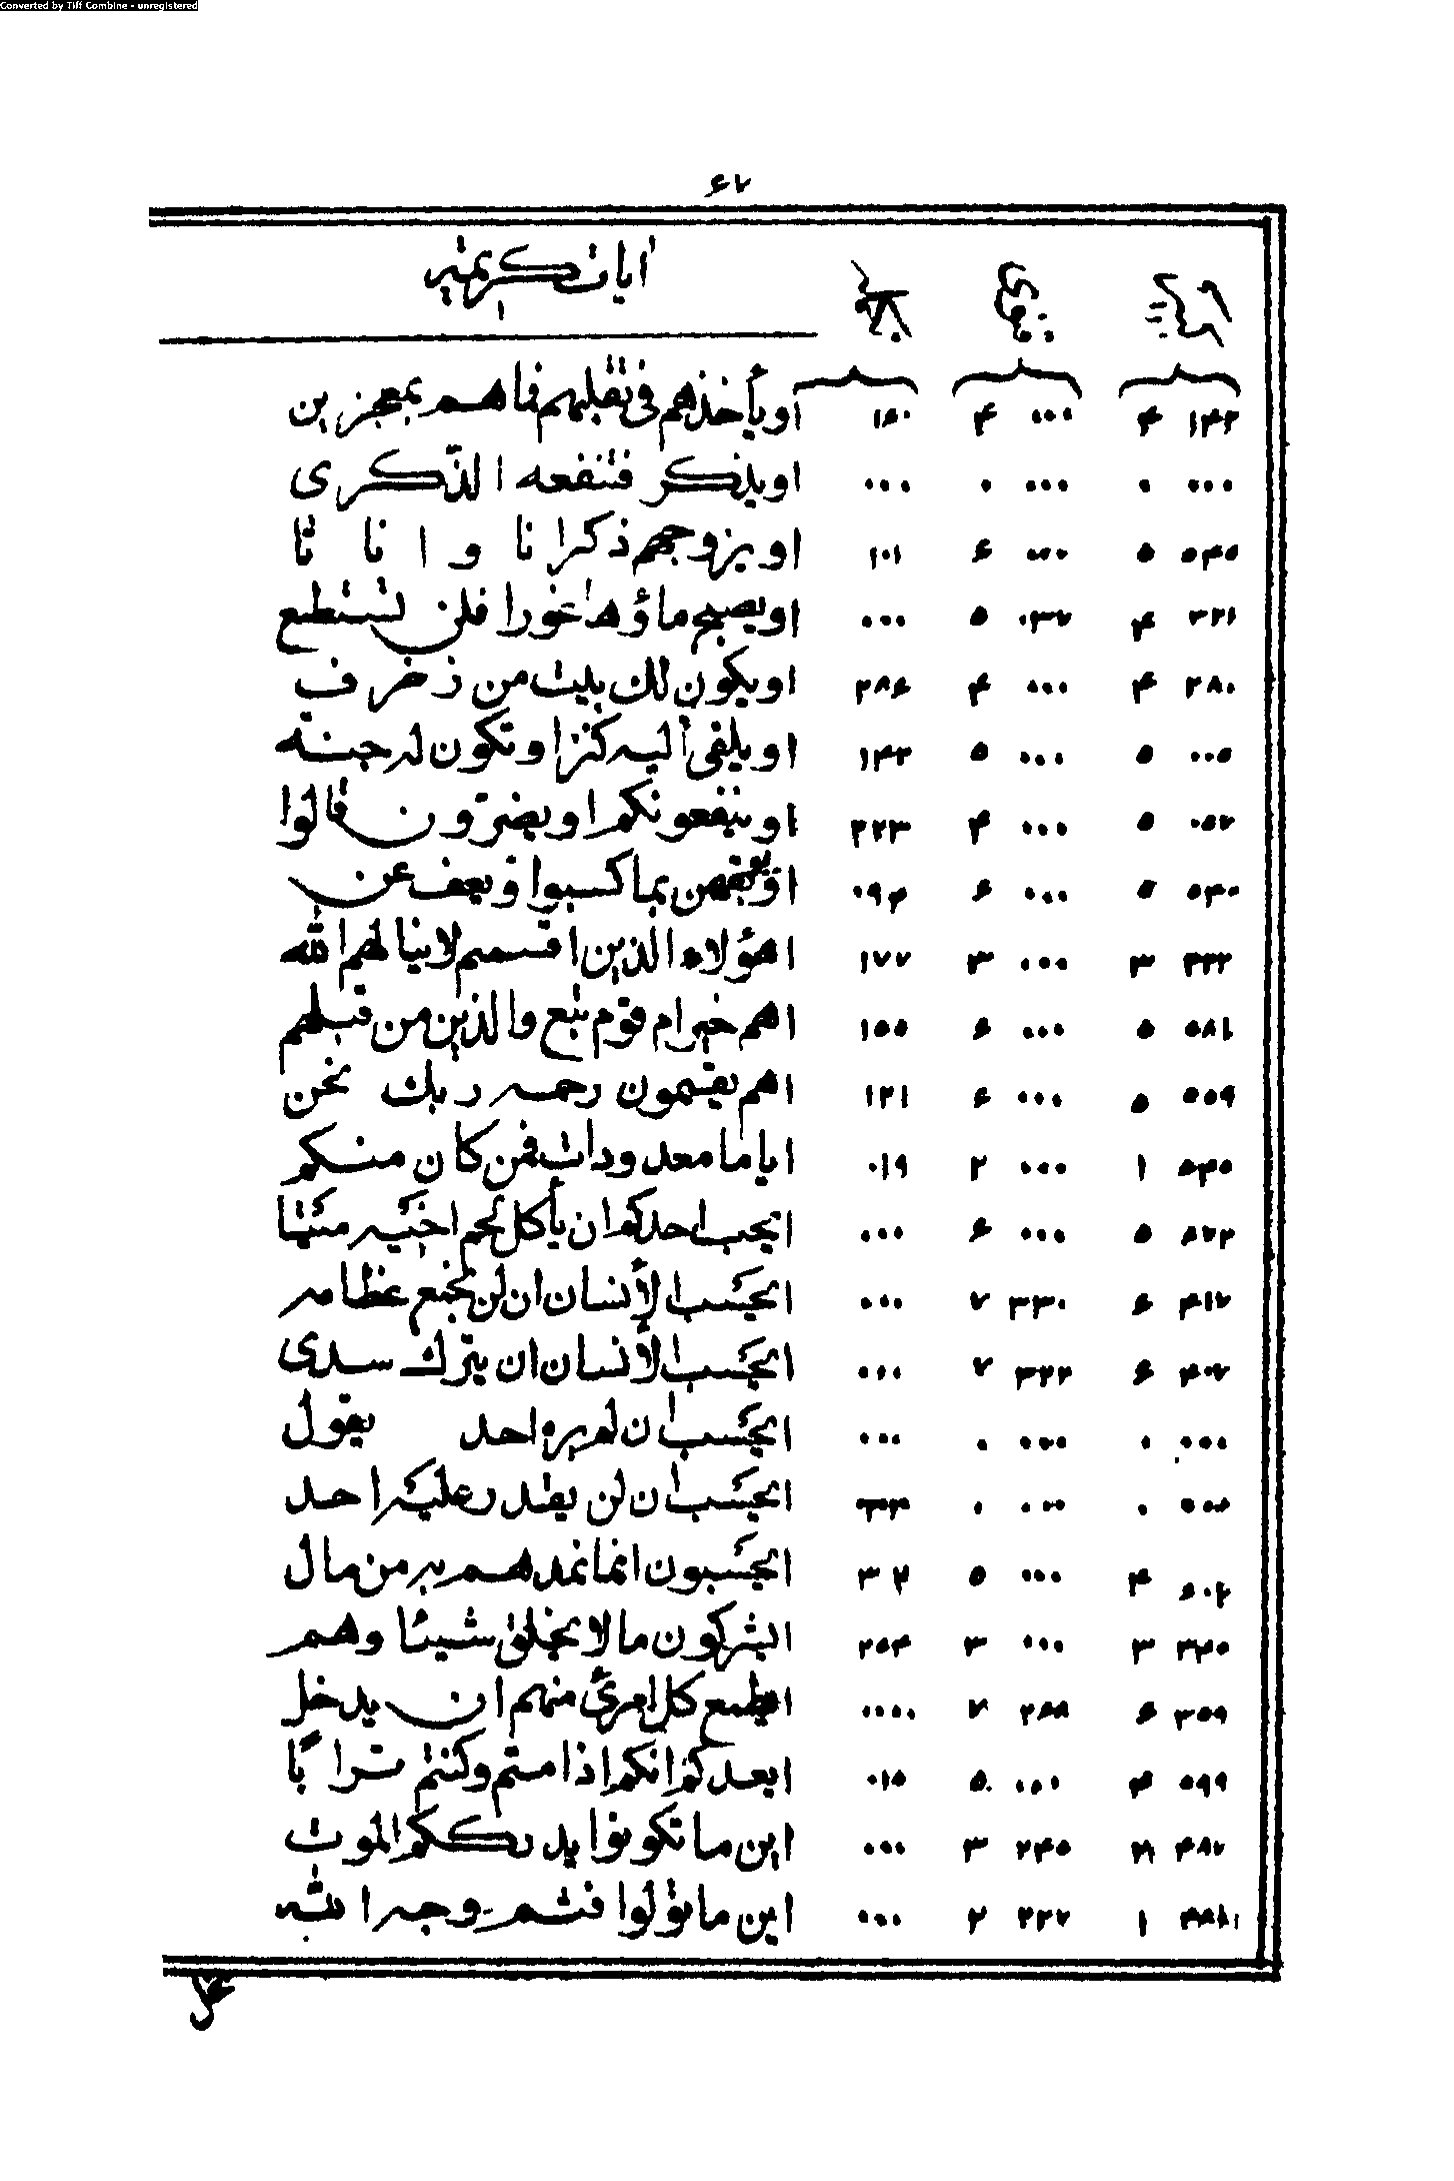 Converted by Tiff Combine - unregistered
۶۷
ايات كريمه
۱۴۳ ۴ ۰۰۰ ۴ ۱۶۰ اويأخذهم فى تقلبهم فما هم بمعجزين
۰۰۰ ۰ ۰۰۰ ۰ ۰۰۰ اويذكر فتنفعه الذكرى
۵۴۵ ۵ ۰۰۰ ۶ ۱۰۱ اويزوجهم ذكرانا و اناثا
۳۲۱ ۴ ۰۳۷ ۵ ۰۰۰ اويصبح ماؤها غورا فلن تستطيع
۲۸۰ ۴ ۰۰۰ ۴ ۲۸۶ اويكون لك بيت من زخرف
۰۰۵ ۵ ۰۰۰ ۵ ۱۴۳ اويلقى اليه كنز اوتكون له جنة
۰۵۷ ۵ ۰۰۰ ۴ ۲۲۳ اوينفعونكم اويضرّون قالوا
۵۴۰ ۵ ۰۰۰ ۶ ۰۹۴ اويوبقهن بما كسبوا ويعف عن
۳۳۲ ۳ ۰۰۰ ۳ ۱۷۷ اهؤلاء الذين اقسمتم لاينالهم الله
۵۸۱ ۵ ۰۰۰ ۶ ۱۵۵ اهم خير ام قوم تبع والذين من قبلهم
۵۵۹ ۵ ۰۰۰ ۶ ۱۲۱ اهم يقسمون رحمه ربك نحن
۵۳۵ ۱ ۰۰۰ ۲ ۰۱۹ اياما معدودات فمن كان منكم
۵ ۰۰۰ ۶ ۰۰۰ ايحب احدكم ان يأكل لحم اخيه ميتها
۴۱۷ ۶ ۳۳۰ ۷ ۰۰۰ ايحسب الأنسان ان لن نجمع عظامه
۴۰۷ ۶ ۳۲۲ ۷ ۰۰۰ ايحسب الأنسان ان يترك سدى
۰۰۰ ۰ ۰۰۰ ۰ ۰۰۰ ايحسب ان لم يره احد يقول
۰۰۰ ۰ ۰۰۰ ۰ ۳۳ ايحسب ان لن يقدر عليه احد
۶۰۲ ۴ ۰۰۰ ۵ ايحسبون انما نمدهم به من مال
۳۴۵ ۳ ۰۰۰ ۳ ۲۵۴ ايشركون مالا يخلق شيئا وهم
۳۵۹ ۶ ۲۸۸ ۷ ۰۰۰۰ ايطمع كل امرئ منهم ان يدخل
۵۹۹ ۴ ۰۰۰ ۵ ۰۱۵ ايعدكم انكم اذا متم وكنتم ترابًا
۲۴۵ ۳ ۰۰۰ اين ما تكونوا يدرككم الموت
۱ ۲۲۷ ۲ ۰۰۰ اين ما تولوا فثم وجه الله